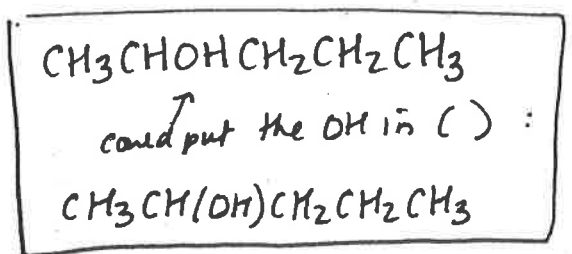 CH₃CHOHCH₂CH₂CH₃
could put the OH in ( ) :
CH₃CH(OH)CH₂CH₂CH₃